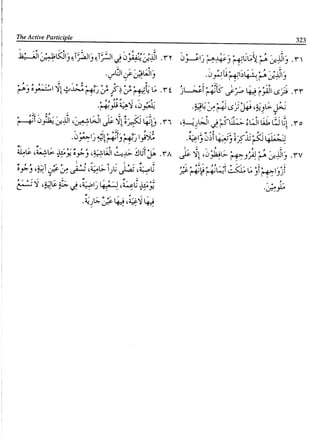 The Active Participle
323
٣١. والذين هم لأماناتهم وعهدهم راعون،
والذين هم بشهاداتهم قائمون.
٣٢. الذين ينفقون في السراء والضراء والكاظمين الغيظ
والعافين عن الناس.
٣٣. فترى القوم فيها صرعى كأنهم أعجاز
نخل خاوية، فهل ترى لهم من باقية.
٣٤. ما يأتيهم من ذكر من ربهم محدث إلا استمعوه وهم
يلعبون، لاهية قلوبهم.
٣٥. إنا لما طغا الماء حملناكم في الجارية،
لنجعلها لكم تذكرة وتعيها أذن واعية.
٣٦. وإنها لكبيرة إلا على الخاشعين، الذين يظنون أنهم
ملاقو ربهم وأنهم إليه راجعون.
٣٧. والذين هم لفروجهم حافظون، إلا على
أزواجهم أو ما ملكت أيمانهم فإنهم غير
ملومين.
٣٨. هل أتاك حديث الغاشية، وجوه يومئذ خاشعة، عاملة
ناصبة، تصلى نارا حامية، تسقى من عين آنية، وجوه
يومئذ ناعمة، لسعيها راضية، في جنة عالية، لا تسمع
فيها لاغية، فيها عين جارية.